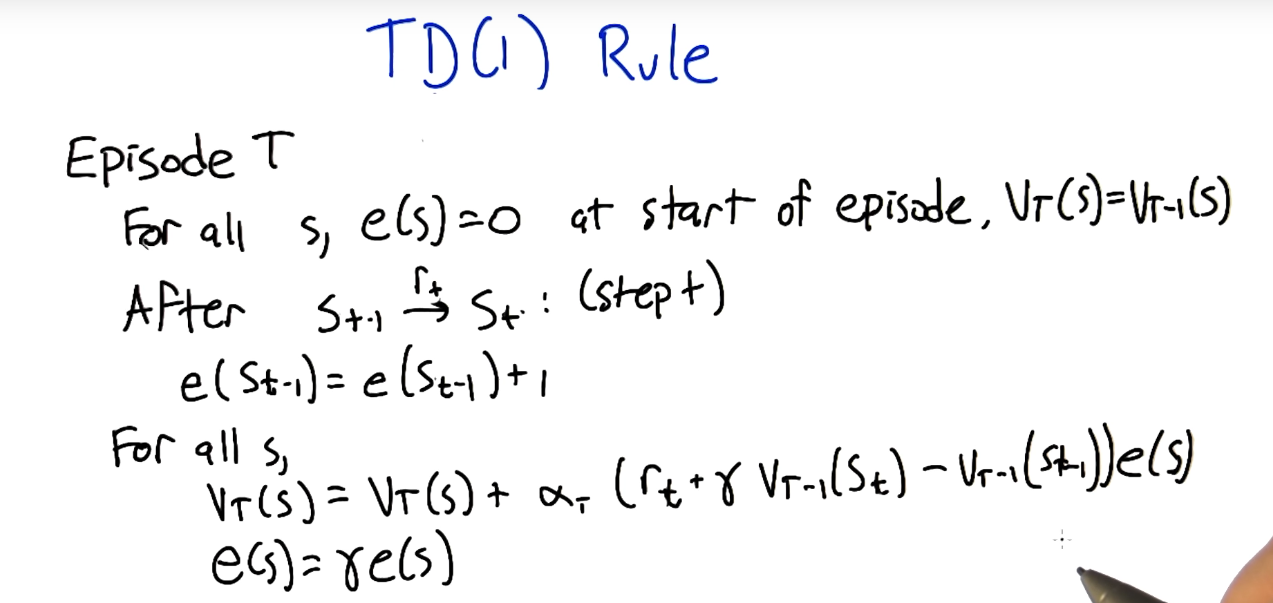 TD(1) Rule
Episode T
For all s, e(s)=0 at start of episode, V_T(s)=V_{T-1}(s)
After s_{t-1} \xrightarrow{r_t} s_t: (step t)
e(s_{t-1})=e(s_{t-1})+1
For all s,
V_T(s)=V_T(s)+α_T(r_t+γV_{T-1}(s_t)-V_{T-1}(s_{t-1}))e(s)
e(s)=γe(s)